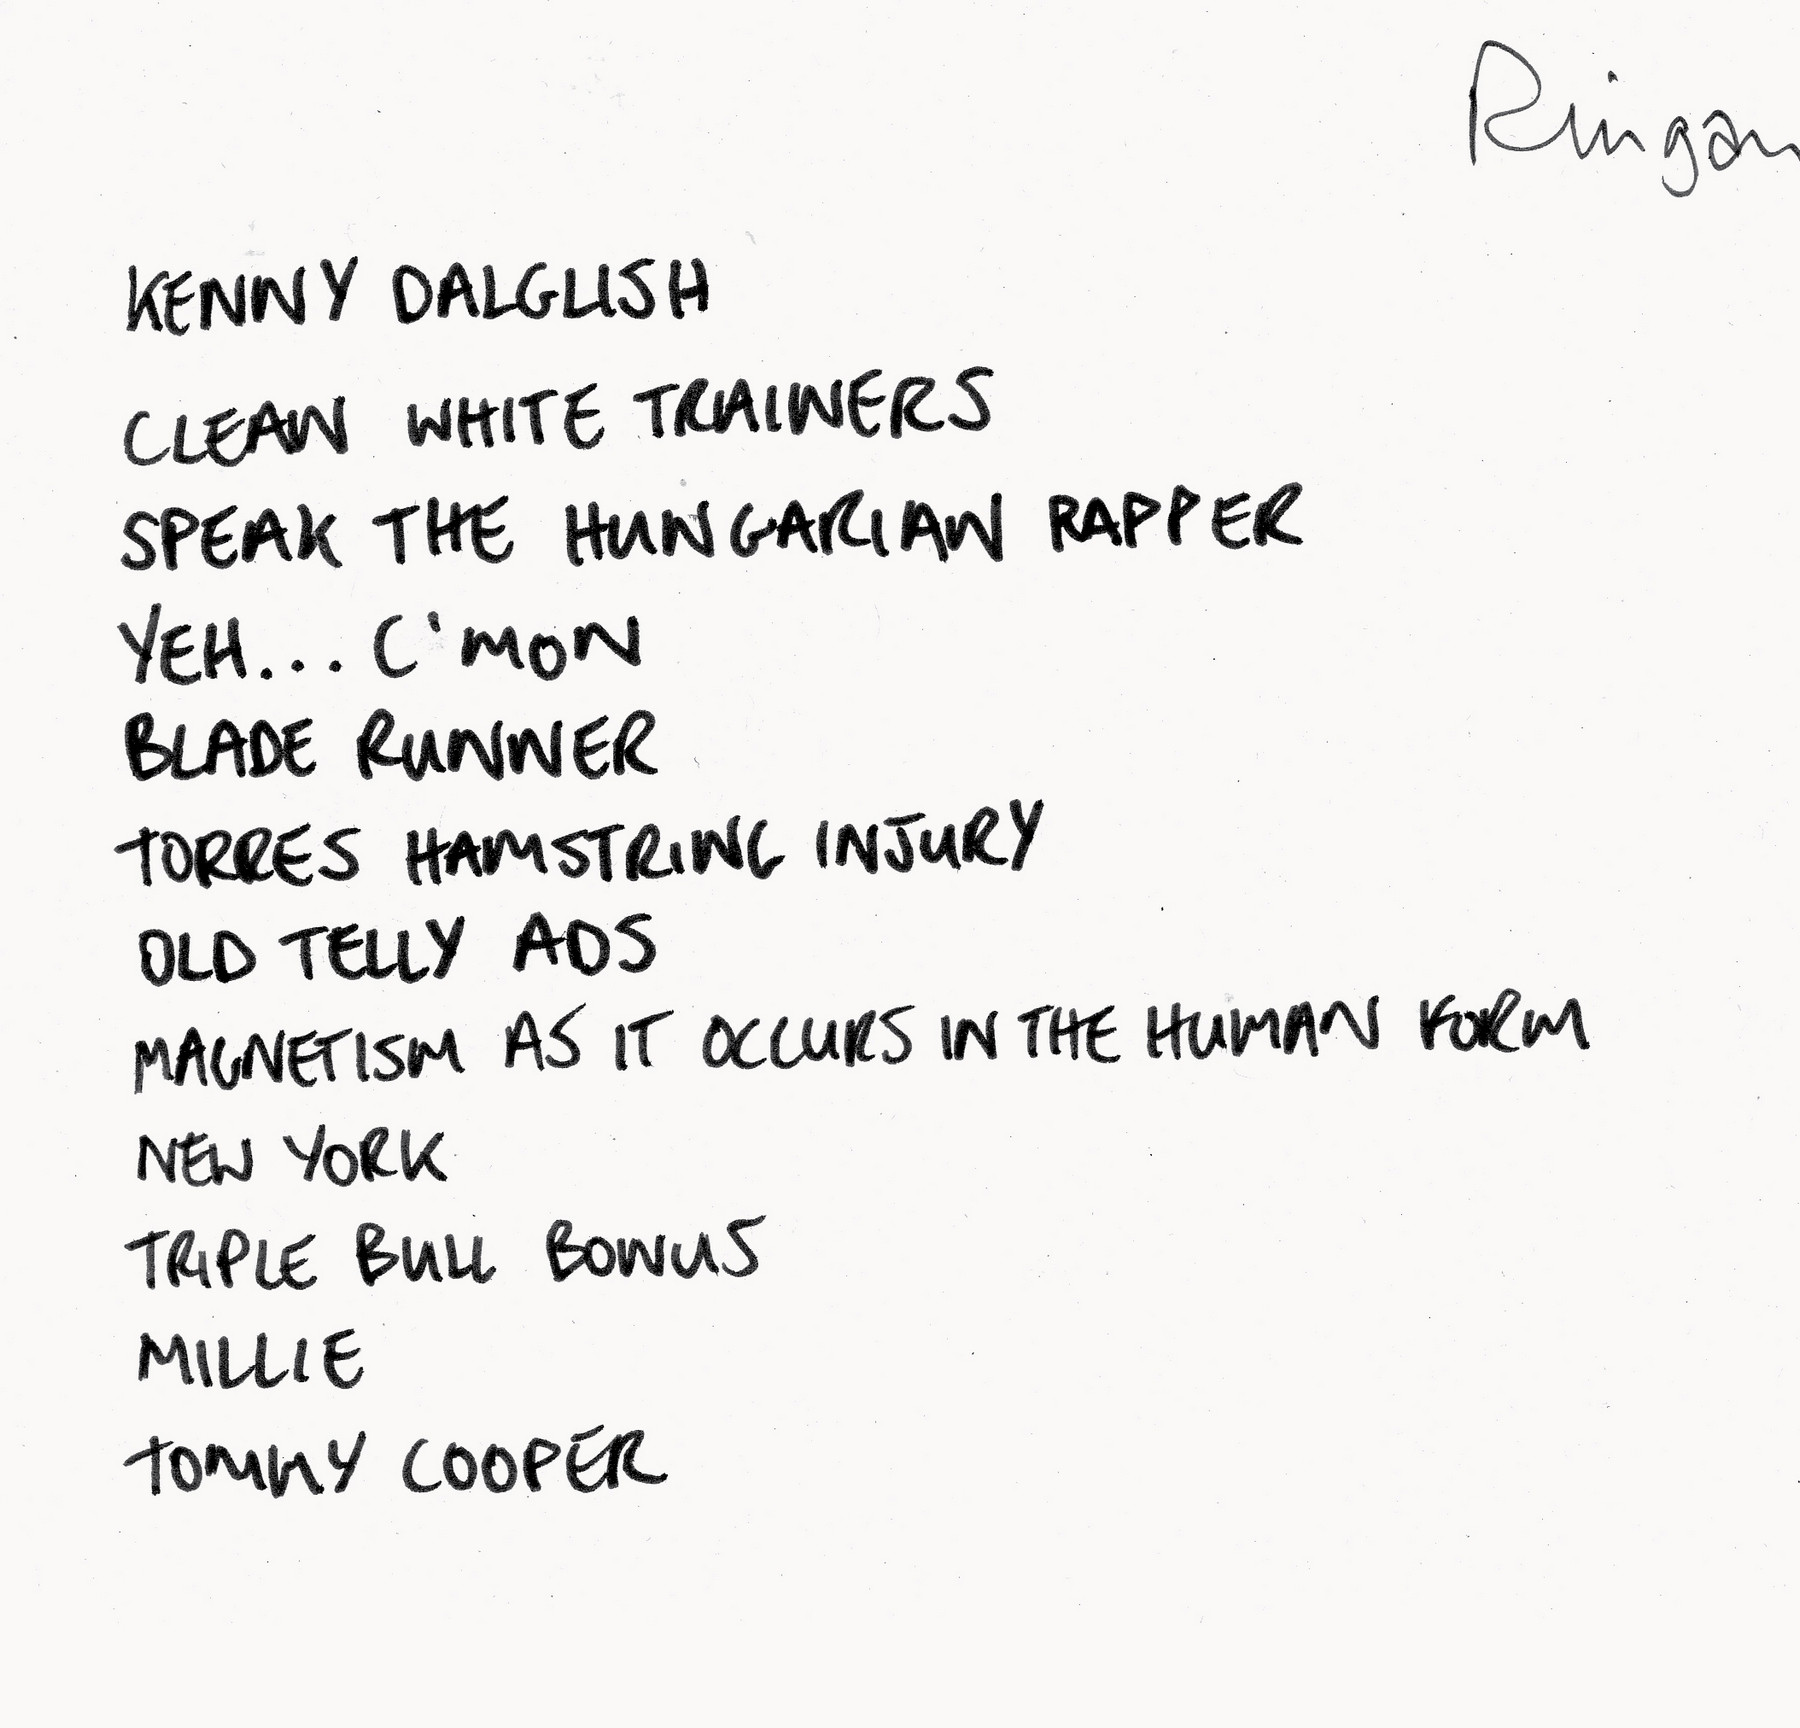 Ringan
KENNY DALGLISH
CLEAN WHITE TRAINERS
SPEAK THE HUNGARIAN RAPPER
YEH... C'MON
BLADE RUNNER
TORRES HAMSTRING INJURY
OLD TELLY ADS
MAGNETISM AS IT OCCURS IN THE HUMAN FORM
NEW YORK
TRIPLE BULL BONUS
MILLIE
TOMMY COOPER